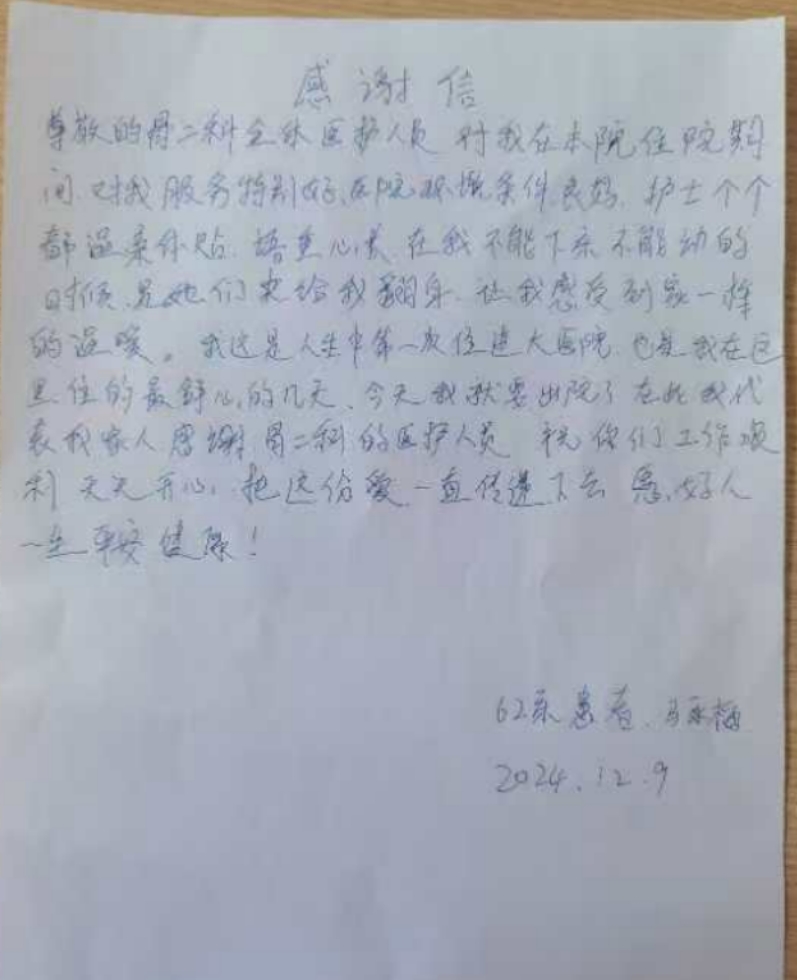 感谢信
尊敬的骨二科全体医护人员 对我在本院住院期
间.对我服务特别好、医院环境条件良好.护士个个
都温柔体贴.语重心长.在我不能下床不能动的
时候.是她们来给我翻身.让我感受到家一样
的温暖。我这是人生中第一次住进大医院.也是我在这
里住的最舒心的几天、今天我就要出院了在此我代
表我家人感谢骨二科的医护人员 祝你们工作顺
利 天天开心.把这份爱一直传递下去 愿好人
一生平安健康！
62床患者.
2024.12.9